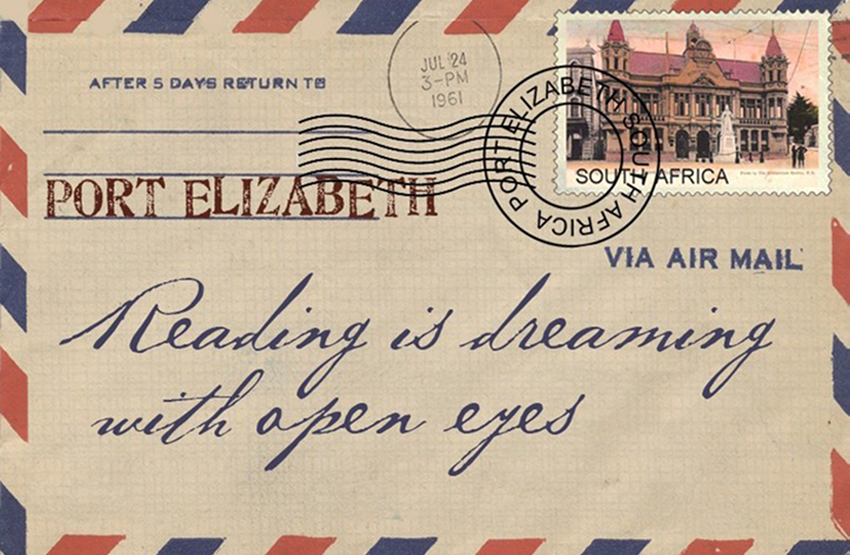 AFTER 5 DAYS RETURN TO
JUL '24
3-PM
1961
PORT ELIZABETH SOUTH AFRICA
SOUTH AFRICA
PORT ELIZABETH
VIA AIR MAIL
Reading is dreaming
with open eyes